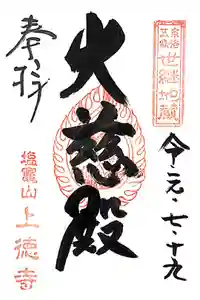 京都
五条
世継地蔵
奉拝
大慈殿
令元・七・十九
塩竈山
上徳寺